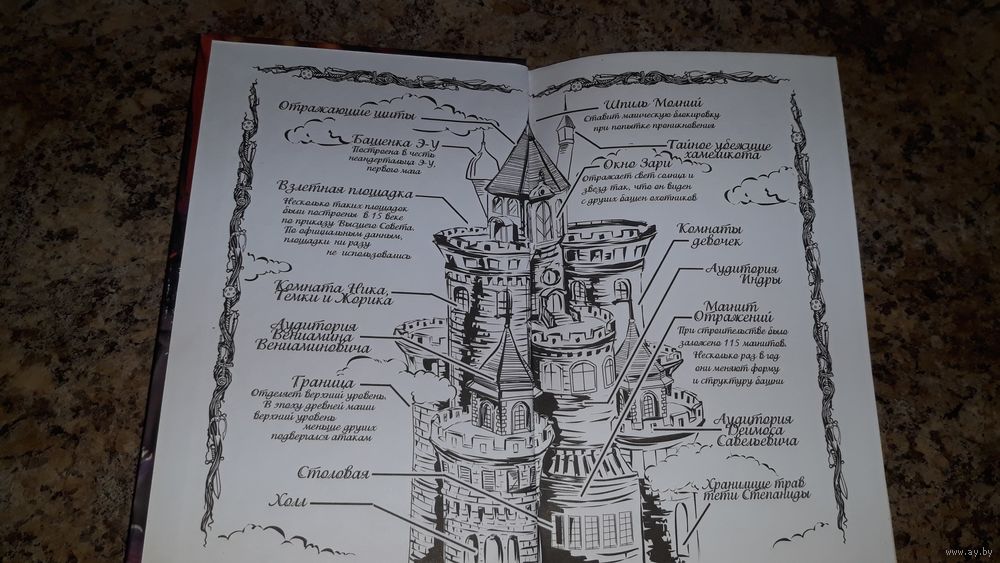 Отражающие щиты
Башенка Э-У
Построена в честь
неандертальца Э-У,
первого мага
Взлетная площадка
Несколько таких площадок
были построены в 15 веке
по приказу Высшего Совета.
По официальным данным,
площадки ни разу
не использовались
Комната Ника,
Темки и Жорика
Аудитория
Вениамина
Вениаминовича
Граница
Отделяет верхний уровень.
В эпоху древней магии
верхний уровень
меньше других
подвергался атакам
Столовая
Холл
Шпиль Молний
Ставит магическую блокировку
при попытке проникновения
Тайное убежище
хамелкота
Окно Зари
Отражает свет солнца и
звезд так, что он виден
с других башен охотников
Комнаты
девочек
Аудитория
Индры
Магнит
Отражений
При строительстве было
заложено 115 магнитов.
Несколько раз в год
они меняют форму
и структуру башни
Аудитория
Деймоса
Савельевича
Хранилище трав
тети Степаниды
www.ay.by